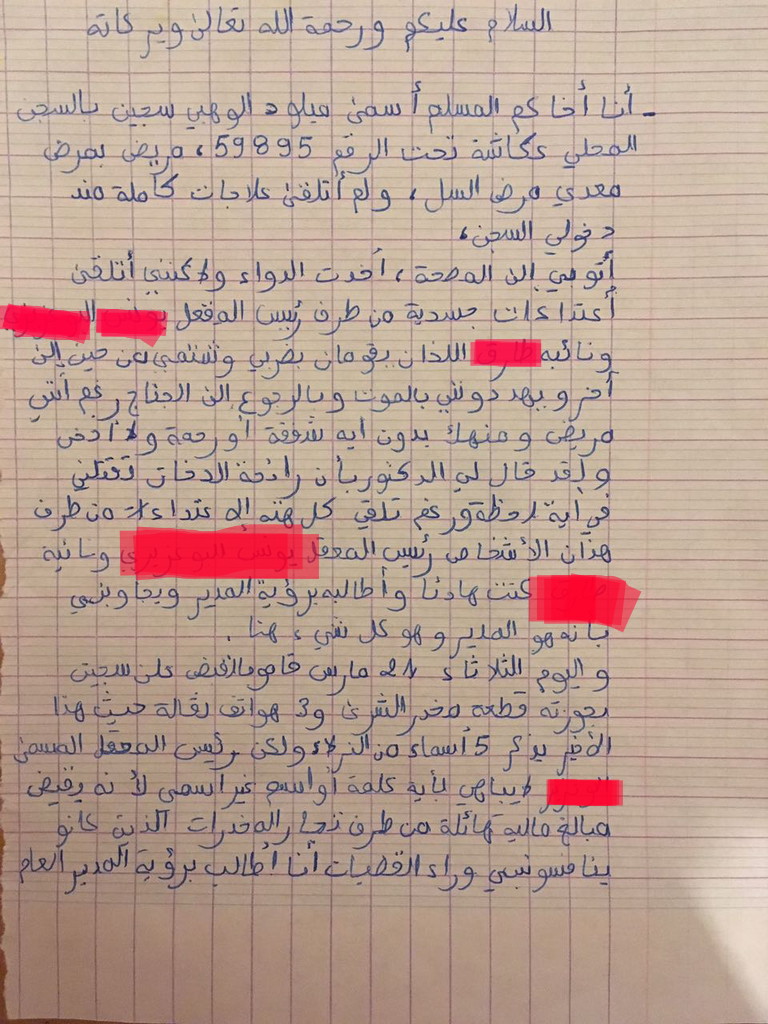 السلام عليكم ورحمة الله تعالى وبركاته
- أنا أخاكم المسلم أسمى ميلود الوهبي سجين بالسجن
المحلي عكاشة تحت الرقم 59895، مريض بمرض
معدي مرض السل، ولم أتلقى علاجات كاملة مند
دخولي السجن،
أتو بي إلى المصحة، أخدت الدواء ولاكنني أتلقى
أعتداءات جسدية من طرف رئيس المعقل
ونائبه اللذان يقومان بضربي وشتمي من حين إلى
أخر ويهددونني بالموت وبالرجوع إلى الجناح رغم أنني
مريض ومنهك بدون أيه شفقة أو رحمة ولا أخفى
ولقد قال لي الدكتور بأن رائحة الدخان تقتلني
في أية لحظة ورغم تلقي كل هته الإعتداءات من طرف
هذان الأشخاص رئيس المعقل ونائبه
كنت هادئا وأطالبه برؤية المدير ويجاوبني
بأنه هو المدير وهو كل شيء هنا.
واليوم الثلاثاء 21 مارس قامو بالقبض على سجين
بحوزته قطعة مخدر الشرى و3 هواتف نقالة حيث هذا
الأخير يذكر 5 أسماء من النزلاء ولكن رئيس المعقل المسمى
لا يبالي بأية كلمة أو اسم غير اسمي لأنه يقبض
مبالغ مالية هائلة من طرف تجار المخدرات الذين كانو
ينافسونني وراء القضبان أنا أطالب برؤية المدير العام